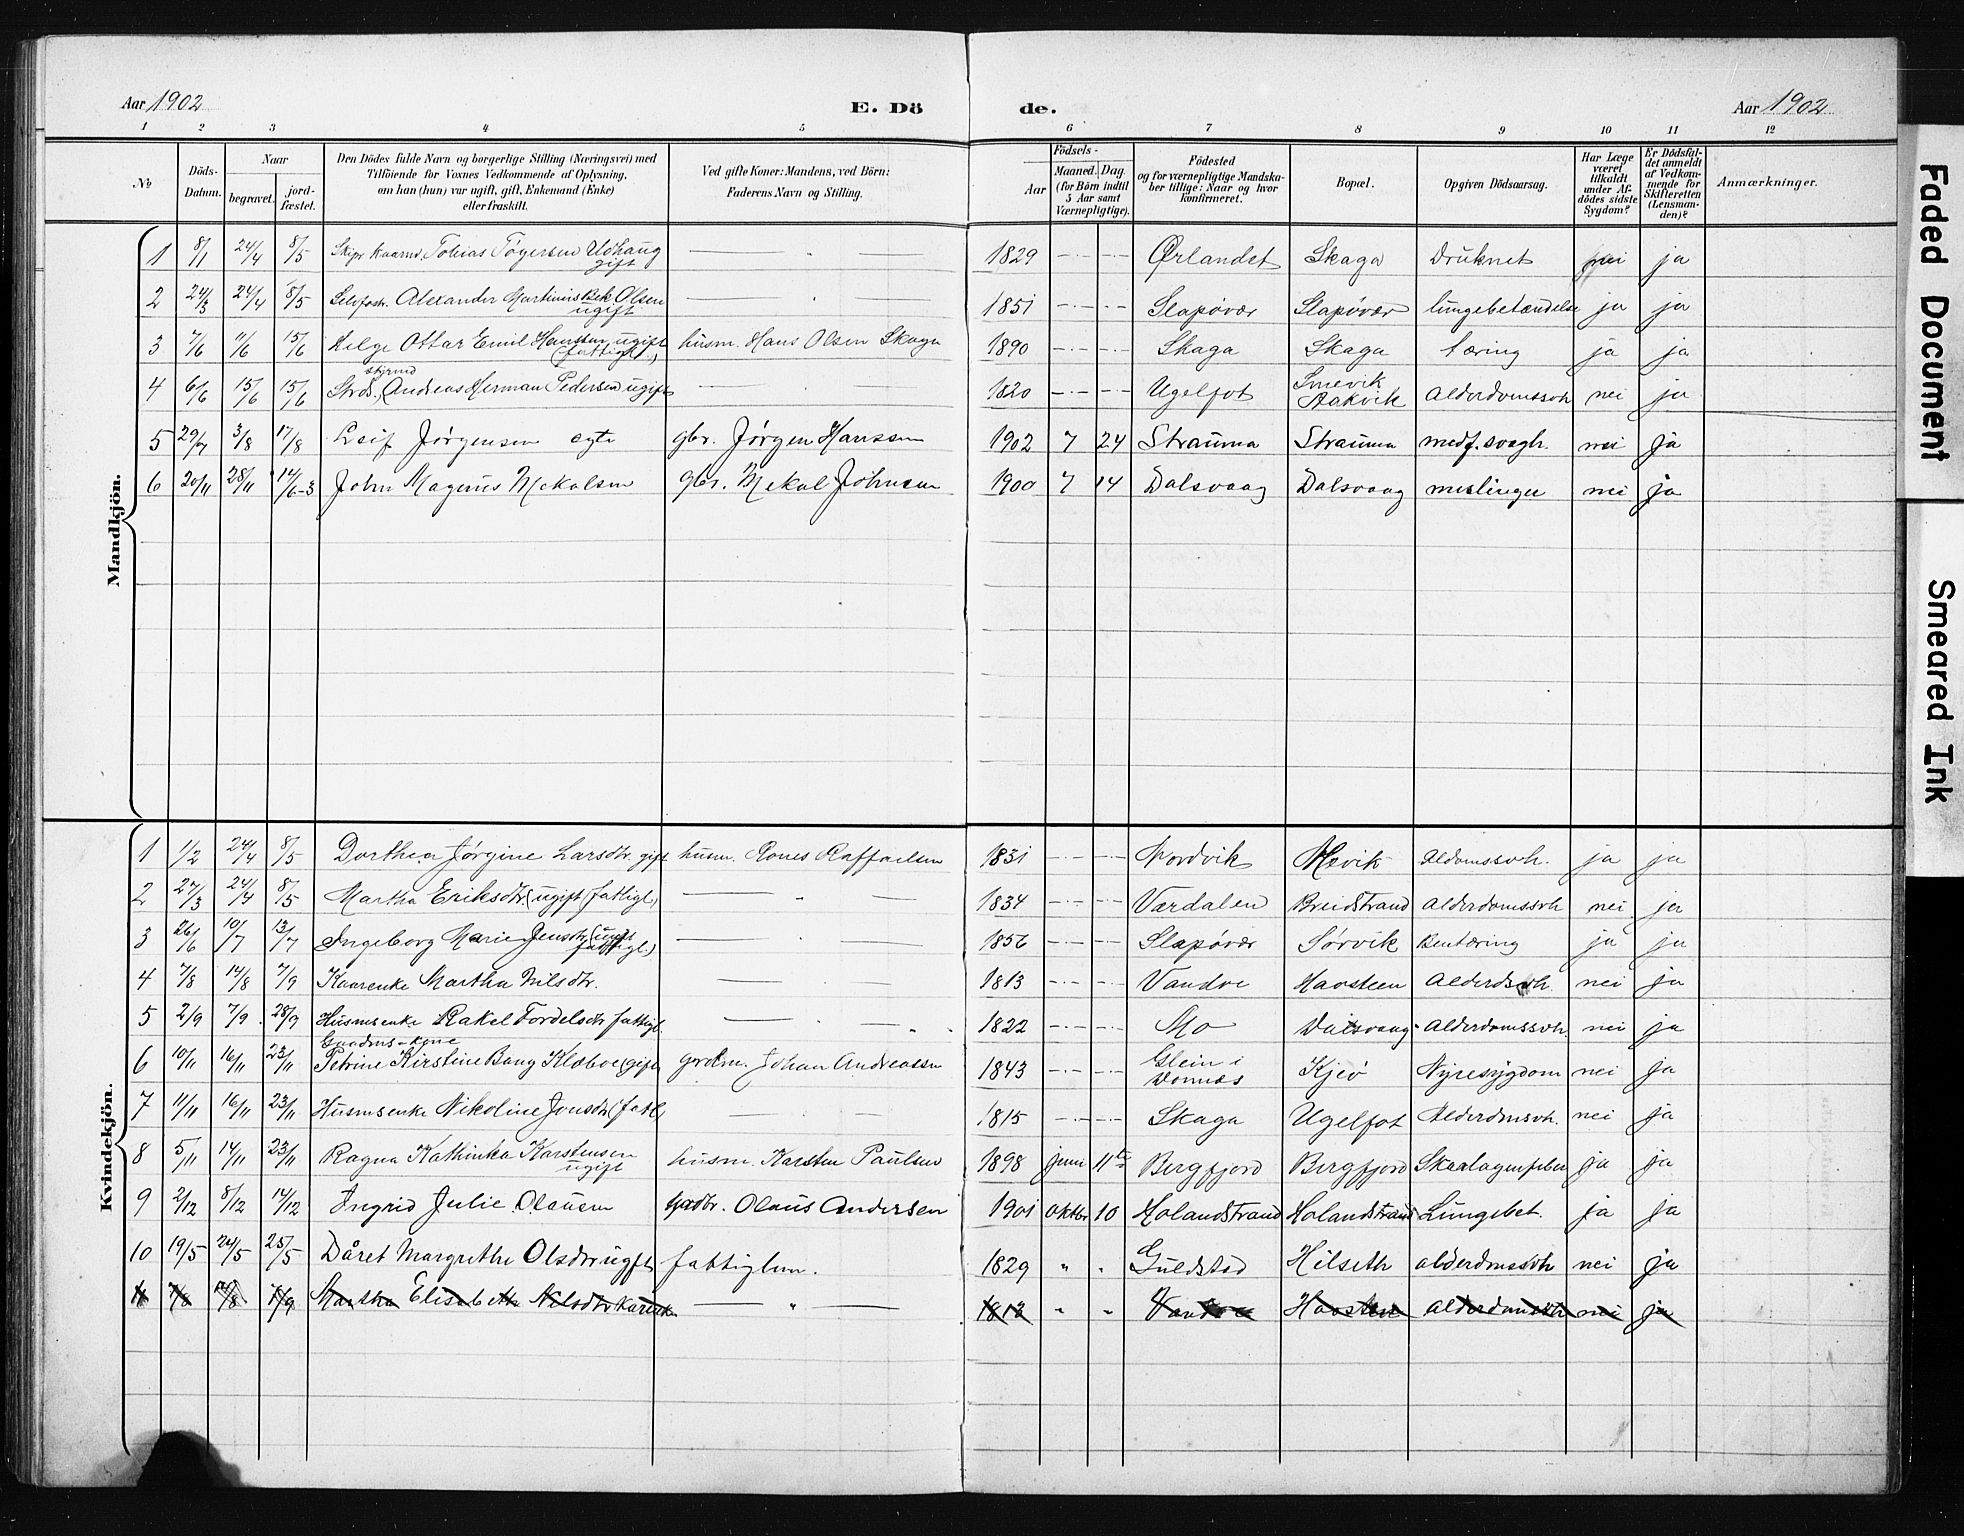 Aar 1902 E. Dö de. Aar 1902
1 2 3 4 5 6 7 8 9 10 11 12
№ Döds-Datum. Naar begravet. jord-fæstet. Den Dödes fulde Navn og borgerlige Stilling (Næringsvei) med Tilföiende for Voxnes Vedkommende af Oplysning, om han (hun) var ugift, gift, Enkemand (Enke) eller fraskilt. Ved gifte Koner: Mandens, ved Börn: Faderens Navn og Stilling. Födsels- Aar Maaned. Dag (for Börn indtil 5 Aar samt Værnepligtige). Födested og for værnepligtige Mandskaber tillige: Naar og hvor konfirmeret. Bopæl. Opgiven Dödsaarsag. Har Læge været tilkaldt under Afdödes sidste Sygdom? Er Dödsfaldet anmeldt af Vedkommende for Skifteretten (Lensmanden)? Anmærkninger.
Mandkjön.
1 8/1 24/4 8/5 Tobias Tøgersen Udhaug gift 1829 Ørlandet Skaga Druknet nei ja
2 24/3 24/4 8/5 Selvfostr. Alexander Martinius Bek Olsen ugift 1851 Slapövær Slapövær lungebetændelse ja ja
3 7/6 11/6 15/6 Helge Ottar Emil Hanssen ugift (fattigl.) husm. Hans Olsen Skaga 1890 Skaga Skaga tæring ja ja
4 6/6 15/6 15/6 Andreas Herman Pedersen ugift 1820 Ugelfot Smevik Aakvik Alderdomssvh nei ja
5 29/7 3/8 17/8 Leif Jørgensen egte gbr. Jørgen Hanssen 1902 7 24 Strauma Strauma medf. svagh. nei ja
6 20/11 28/11 14/6-3 John Magnus Mekalsen gbr. Mekal Johnsen 1900 7 14 Dalsvaag Dalsvaag meslinger nei ja
Kvindekjön.
1 1/2 24/4 8/5 Dorthea Jørgine Larsdtr. gift husm. Rones Raffaelsen 1831 Nordvik Mevik Aldomssvh. ja ja
2 27/3 24/4 8/5 Martha Eriksdtr (ugift (fattigl,) 1834 Vardalen Breidstrand Alderdomssvh nei ja
3 26/6 10/7 13/7 Ingeborg Marie Jensdtr (ugift fattigl.) 1856 Slapövær Sörvik Bentæring ja ja
4 7/8 14/8 7/9 Kaarenke Martha Nilsdtr. 1813 Vandve Havsteen Alderdssvh nei ja
5 2/9 7/9 28/9 Husmsenke Rakel Fordelsdtr fattigl. 1822 Mo Dalsvaag Alderdomssvh nei ja
6 10/11 16/11 23/11 Gaardms-kone Petrine Kirstine Bang Klæboe (gift grdm. Johan Andreassen 1843 Glein i Dönnæs Kjeö Nyresygdom nei ja
7 11/11 16/11 23/11 Husmsenke Nikoline Jonsdtr (fatl) 1815 Skaga Ugelfot Alderdmsvh. nei ja
8 5/11 14/11 23/11 Ragna Kathinka Karstensen ugift husm. Karsten Paulsen 1898 juni 11te Bergfjord Bergfjord Skarlagensfeber ja ja
9 2/12 8/12 14/12 Ingrid Julie Olausen gadbr. Olaus Andersen 1901 oktbr 10 Holandstrand Holandstrand Lungebet. ja ja
10 19/5 24/5 25/5 Dåret Margrethe Olsdtr ugift fattiglem. 1829 " " Guldstad Hilseth alderdmssvh nei ja
11 7/8 14/8 7/9 Martha Elisabeth Nilsdtr Karenk " 1813 " " Vandve Havsteen alderdomssvh nei ja
Faded Document
Smeared Ink